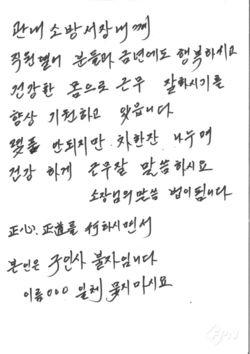 관내 소방서장내께
직원별어 분들과 금년에도 행복하시고
건강한 몸으로 근무 잘하시기를
향상 기원하고 있읍니다
몇품 안되지만 차한잔 나누며
건강 하게 근무잘 말씀하시요
소장님의 말씀 법이됩니다
正心, 正道를 行하시면서
본인은 구인사 불자입니다
이름000 일체 묻지마시요
FPN